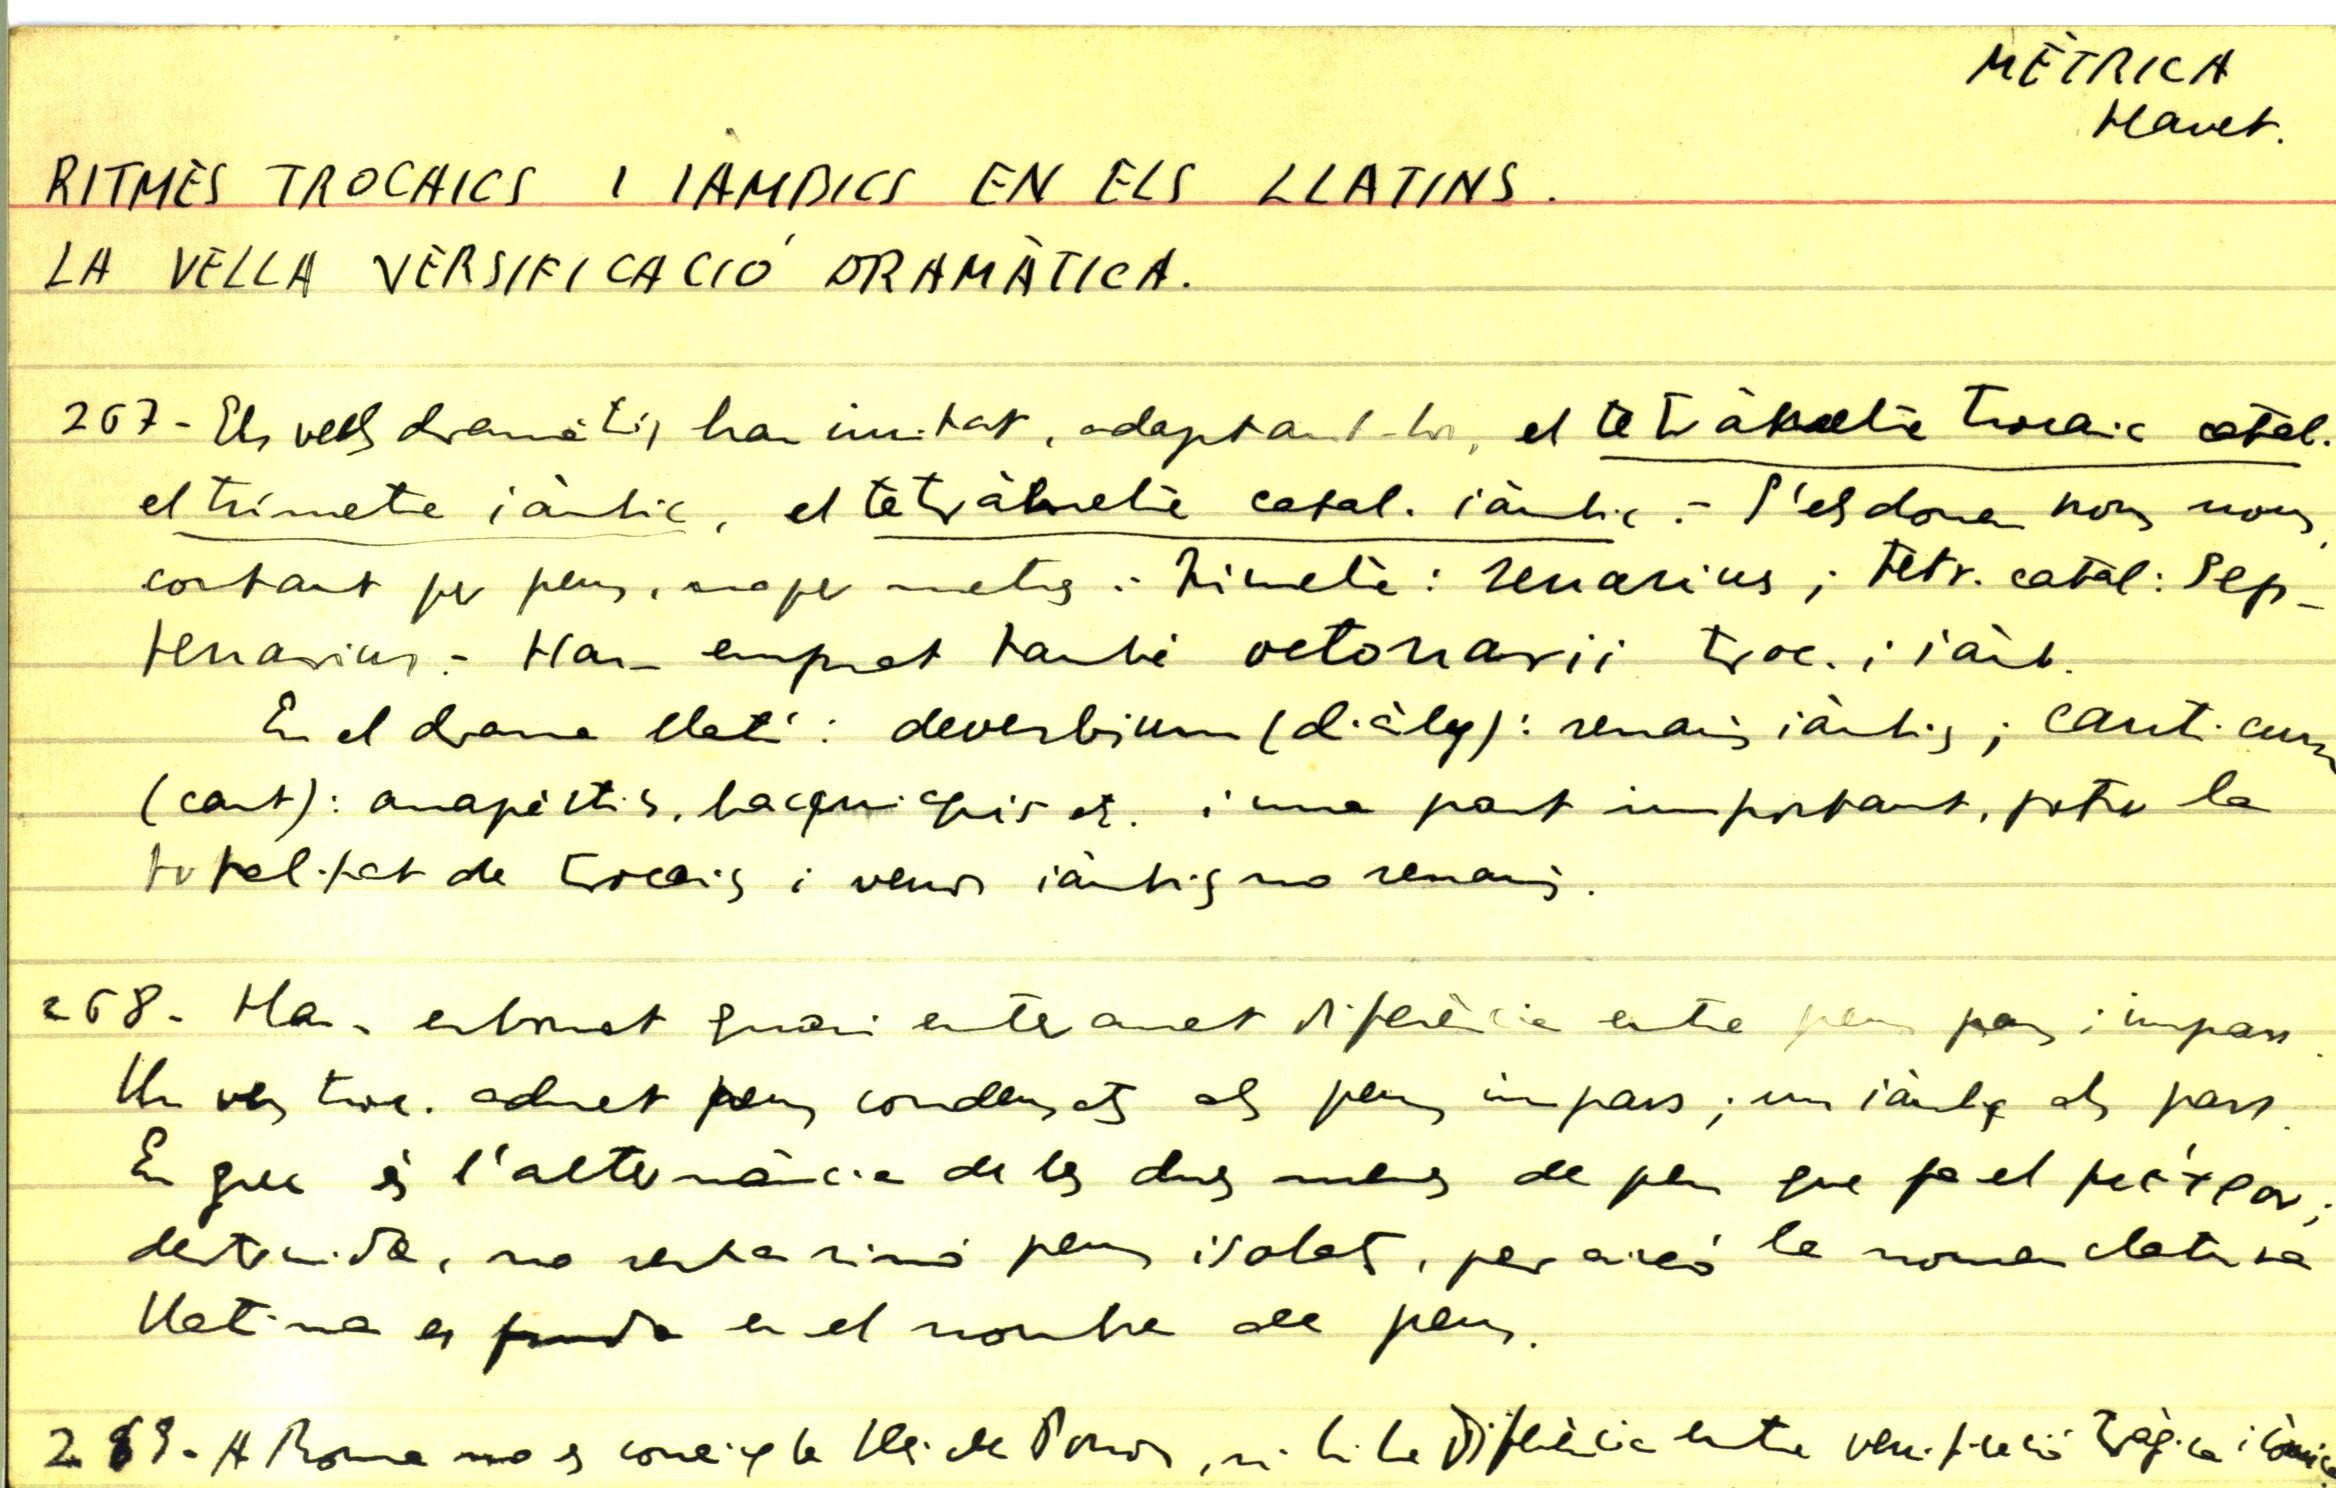 MÈTRICA
Havet.
RITMES TROCAICS I IÀMBICS EN ELS LLATINS.
LA VELLA VERSIFICACIÓ DRAMÀTICA.
267- Els vells dramàtics han imitat, adaptant-los, el tetràmetre trocaic catal.
el trímetre iàmbic, el tetràmetre catal. iàmbic.- S'els dona nom nou,
contant per peus, no per metres: trímetre: senarius; tetr. catal: Sep-
tenarius.- Han emprat també octonarii troc. i iàmb.
En el drama llatí: deverbium (diàleg): senaris iàmbics; canticum
(cant): anapèstics, bacquics etc. i una part important, potser la
totalitat de trocaics i versos iàmbics no senaris.
268- Han esborrat quasi enterament diferència entre peus pars i impars.
Un vers troc. admet peus condensats als peus impars; un iàmbic als pars.
En grec és l'alternància de les dues menes de peu que fa el μέτρον;
destruida, no resta sinó peus isolats, per això la nomenclatura
llatina es funda en el nombre de peus.
269- A Roma no es coneix la llei de Porson, ni hi ha diferència entre versificació tràgica i còmica.